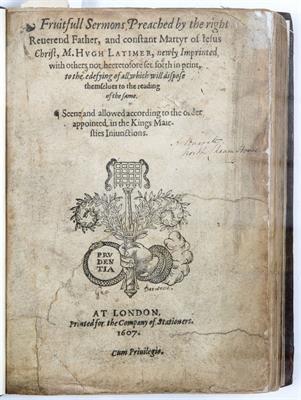 Fruitfull Sermons, Preached by the right
Reuerend Father, and constant Martyr of Iesus
Christ, M. HVGH LATIMER, newly Imprinted,
with others not, heeretofore set foorth in print,
to the edefying of all which will dispose
themselues to the reading
of the same.
Seene and allowed according to the order
appointed, in the Kings Maie-
sties Iniunctions.
PRV
DENTIA
AT LONDON,
Printed for the Company of Stationers.
1607.
Cum Priuilegio.